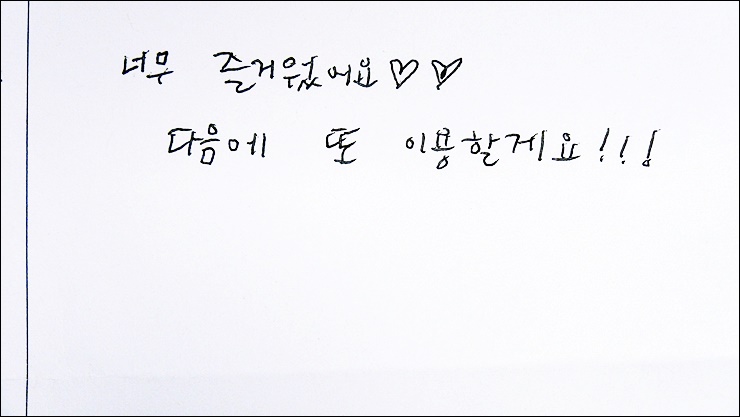 너무 즐거웠어요♡♡
다음에 또 이용할게요!!!